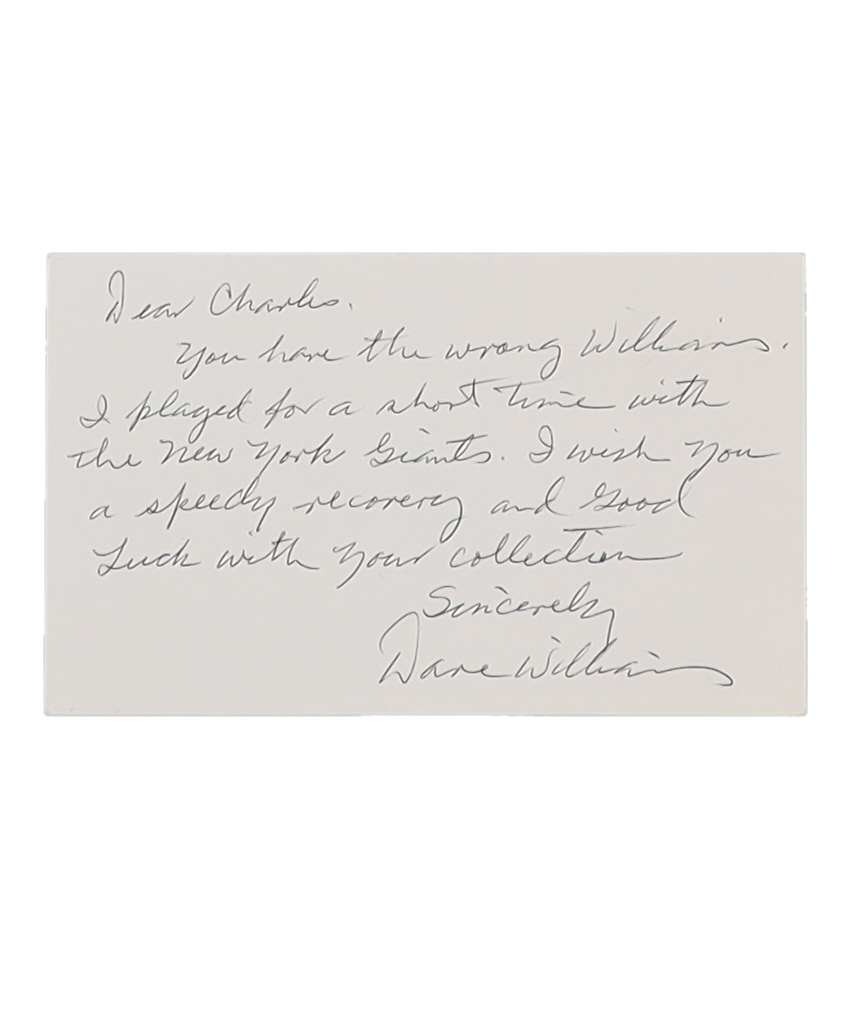 Dear Charles.
You have the wrong Williams.
I played for a short time with
the New York Giants. I wish you
a speedy recovery and Good
Luck with your collection
Sincerely
Dave Williams